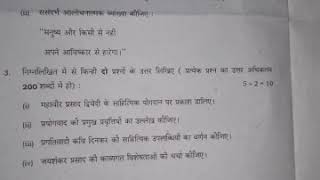 (iii) ससंदर्भ आलोचनात्मक व्याख्या कीजिए।
"मनुष्य और किसी से नहीं
अपने आविष्कार से हारेगा।"
3. निम्नलिखित में से किन्हीं दो प्रश्नों के उत्तर लिखिए ( प्रत्येक प्रश्न का उत्तर अधिकतम
200 शब्दों में हो) : 5 × 2 = 10
(i) महावीर प्रसाद द्विवेदी के साहित्यिक योगदान पर प्रकाश डालिए।
(ii) प्रयोगवाद की प्रमुख प्रवृत्तियों का उल्लेख कीजिए।
(iii) प्रगतिवादी कवि दिनकर की साहित्यिक उपलब्धियों का वर्णन कीजिए।
(iv) जयशंकर प्रसाद की काव्यगत विशेषताओं की चर्चा कीजिए।